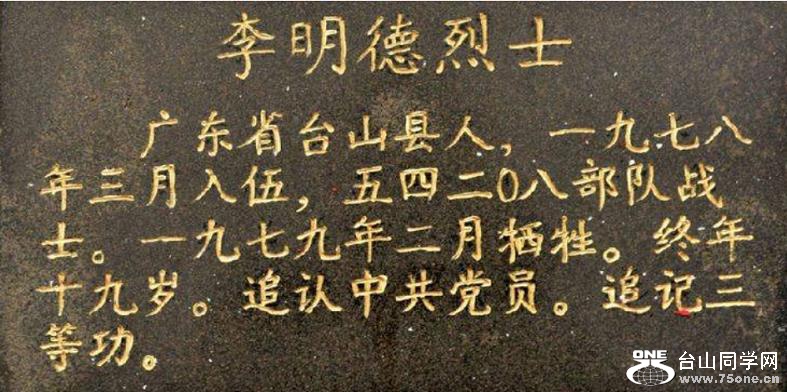 李明德烈士
广东省台山县人，一九七八
年三月入伍，五四二0八部队战
士。一九七九年二月牺牲。终年
十九岁。追认中共党员。追记三
等功。
ONE
台山同学网
www.75one.cn